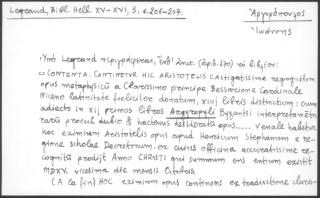 Legrand, Bibl. Hell. XV-XVI, 3, σ. 206-207.
Ἀργυρόπουλος
Ἰωάννης
Ὑπὸ Legrand περιγράφεται, ἐνθ' ἀνωτ. (ἀριθ. 170) τὸ βιβλίον:
"CONTENTA. CONTINETUR HIC ARISTOTELIS CAstigatissime recognitum
opus metaphysicū a Clarissimo principe Bessarione Cardinale
Niceno latinitate foeliciter donatum, xiiij libris distinctum: cum
adiecto in xij primos libros Argyropyli Byzantij interpretamēto,
rarū proculdubio & hactenus desideratū opus..... Venale habetur
hoc eximium Aristotelis opus apud Henricum Stephanum e re-
gione scholae Decretorum, ex cuius officina accuratissime re-
cognitū prodijt Anno CHRISTI qui summum ens entium existit
MDXV. vicesima die mensis Octobris
(A la fin) HOC eximium opus continens ex traductione claris-